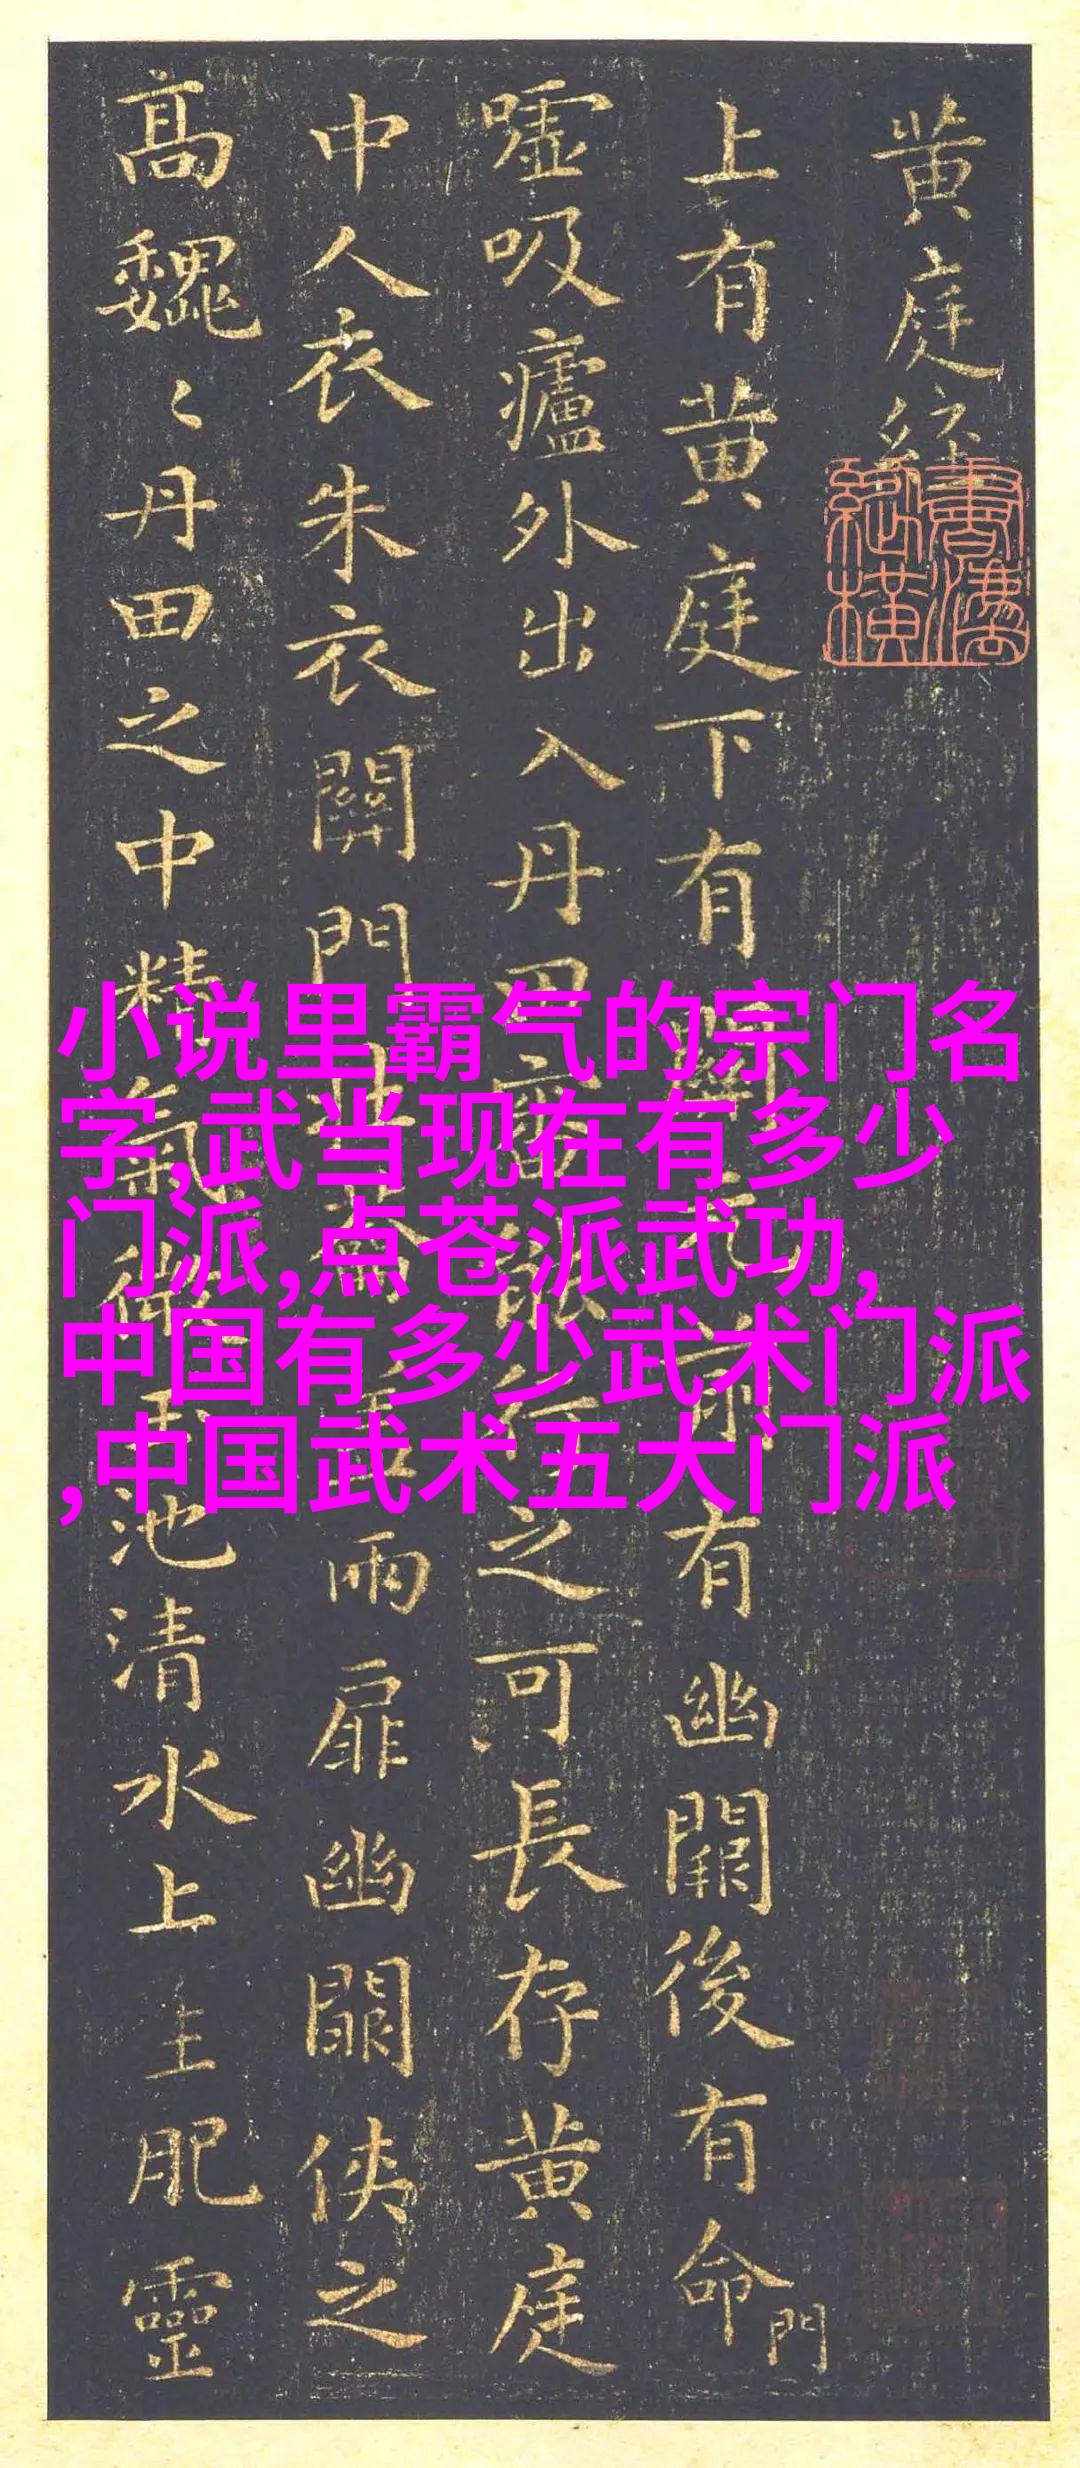 黄庭經
上有黄庭下有關元前有幽闕後有命門
嘘吸廬外出入丹田審能行之可長存黄庭
中人衣朱衣關門壯籥兩扉幽闕俠之
高魏〻丹田之中精氣微玉池清水上生肥靈
小说里霸气的宗门名
字,武当现在有多少
门派,点苍派武功,
中国有多少武术门派
,中国武术五大门派